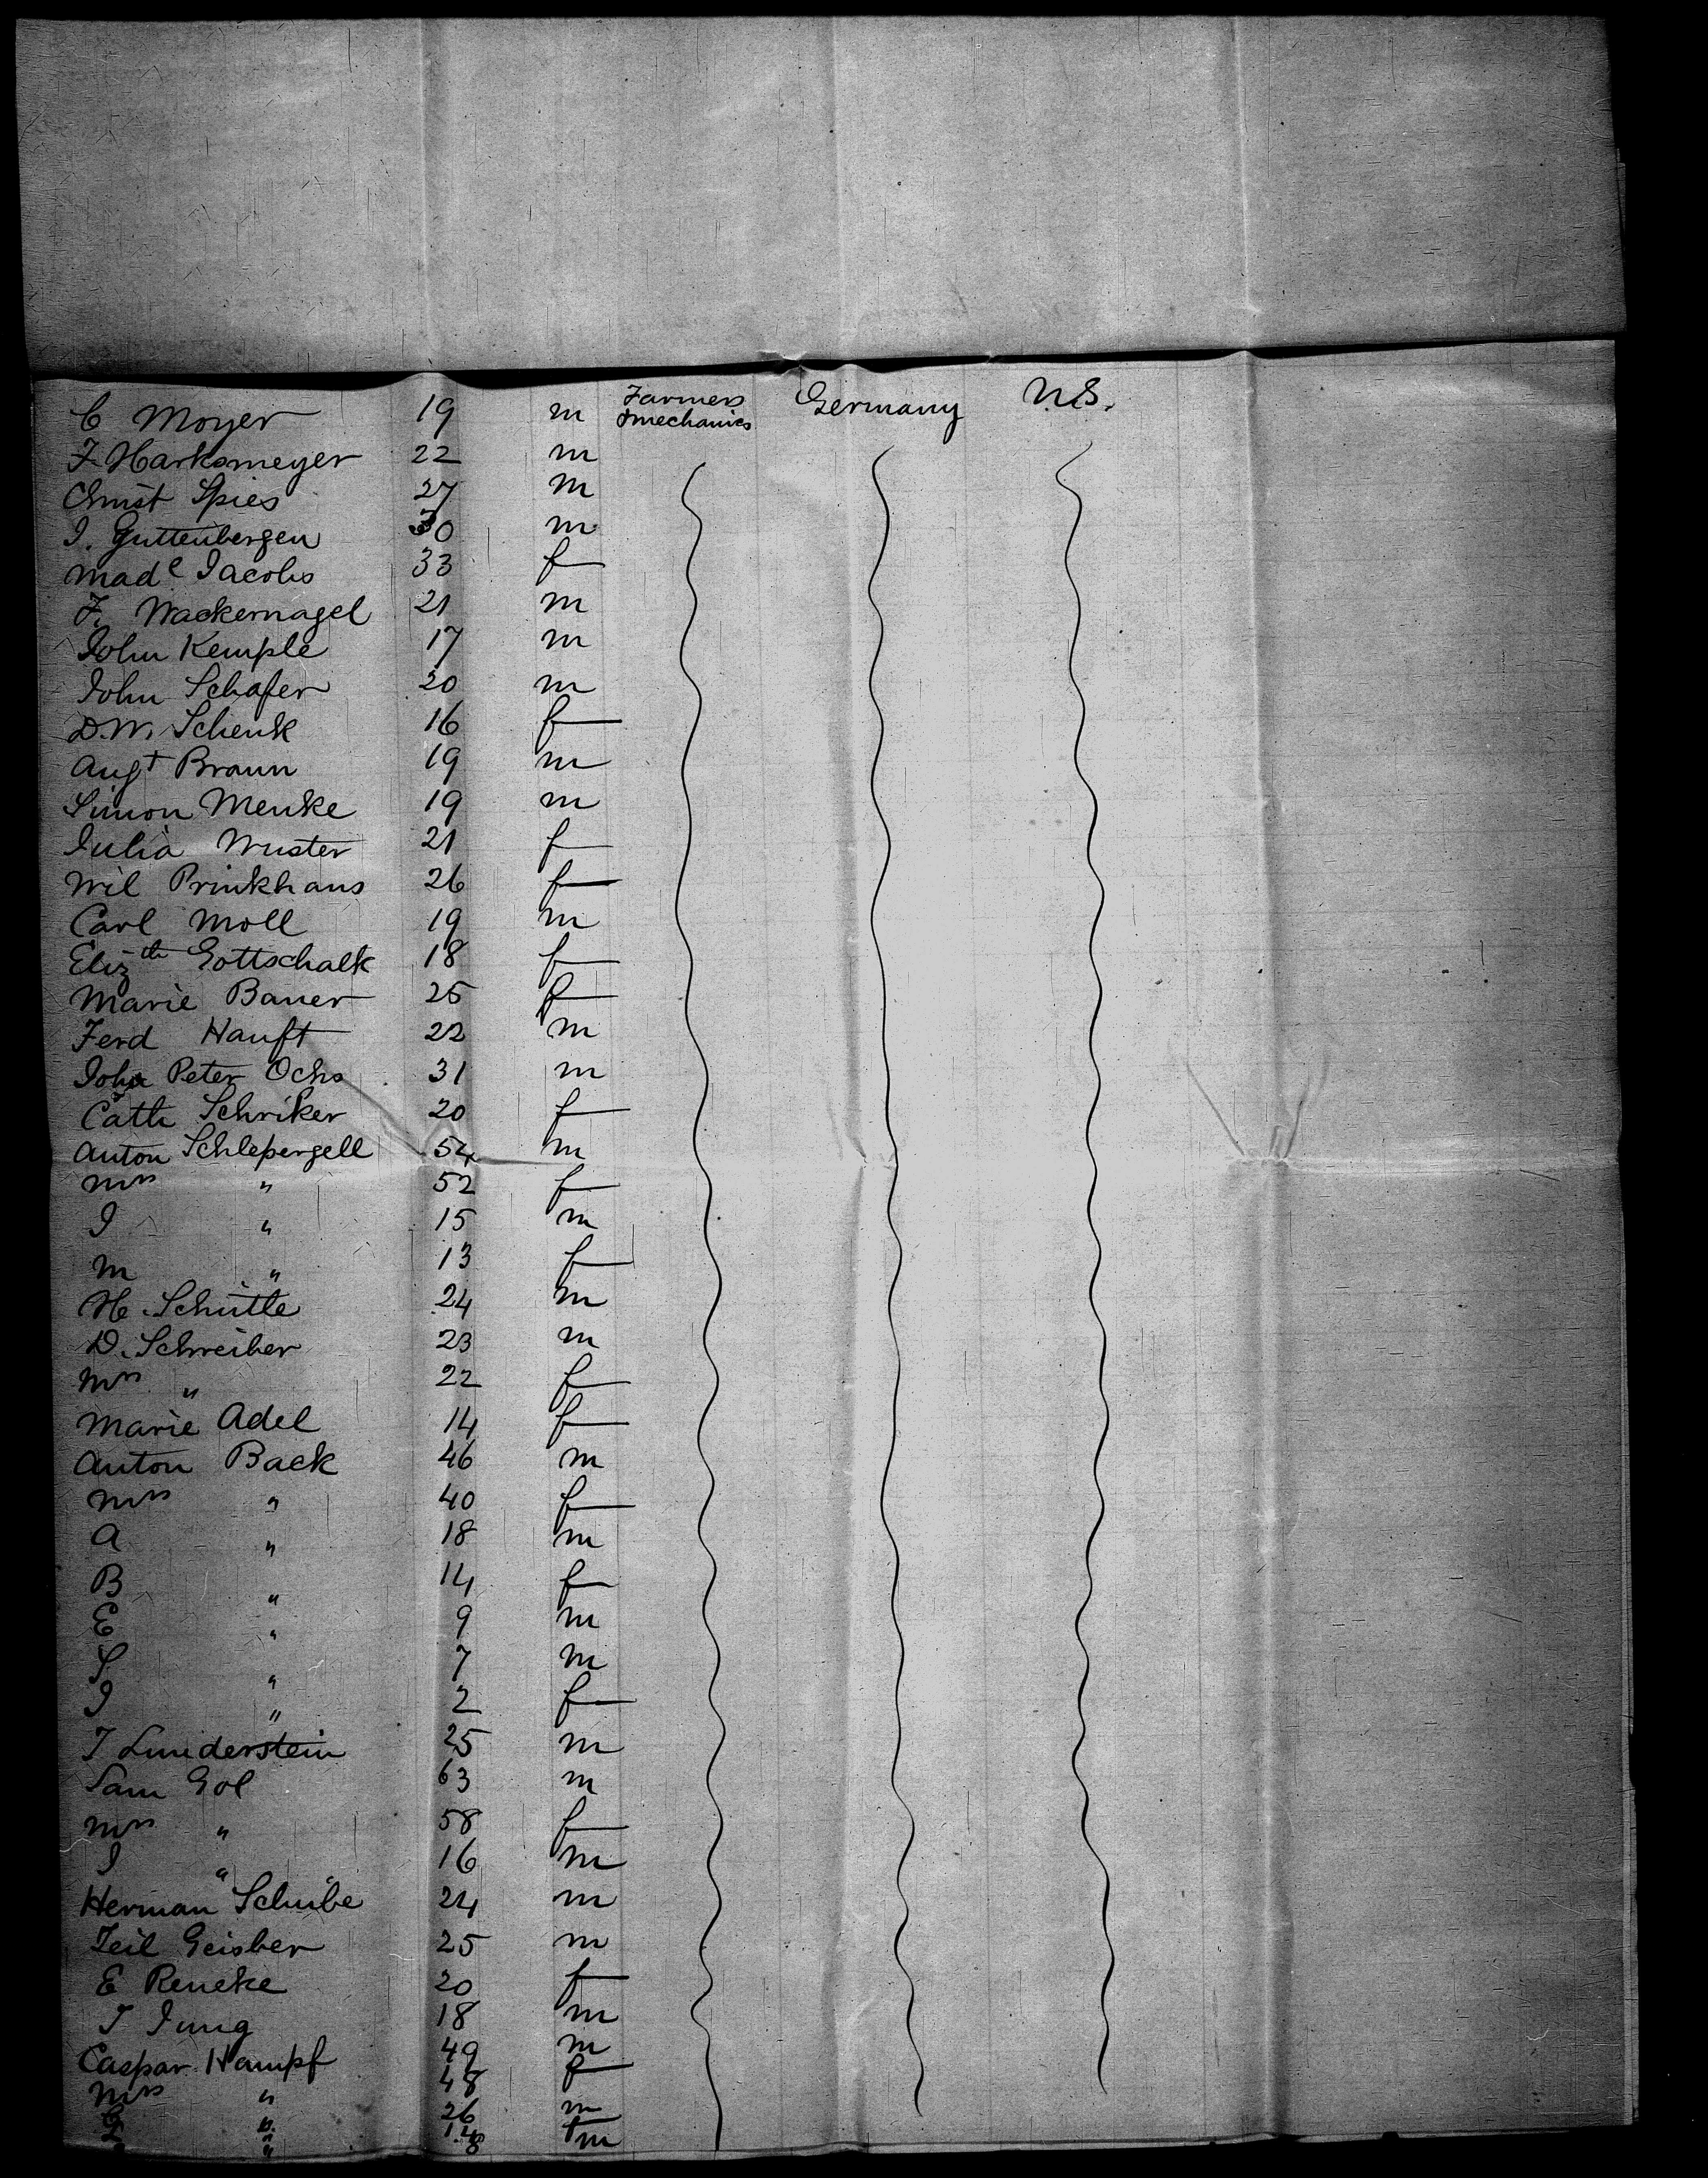 C Moyer 19 m Farmers & mechanics Germany U.S.
F. Harksmeyer 22 m
Christ Spies 27 m
I. Guttenbergen 30 m
Made Jacobs 33 f
F. Wackernagel 21 m
John Kemple 17 m
John Schafer 20 m
D.W. Schenk 16 f
Augt Braun 19 m
Simon Menke 19 m
Julia Wuster 21 f
Wil Prinkhaus 26 f
Carl Moll 19 m
Elizth Gottschalk 18 f
Marie Bauer 25 f
Ferd Hauft 22 m
John Peter Ochs 31 m
Cath Schriker 20 f
Anton Schlepergell 54 m
Mrs " 52 f
I " 15 m
M " 13 f
H. Schutte 24 m
D. Schreiber 23 m
Mrs " 22 f
Marie Adel 14 f
Anton Back 46 m
Mrs " 40 f
A " 18 m
B " 14 f
E " 9 m
S " 7 m
I " 2 f
T Linderstein 25 m
Sam Gol 63 m
Mrs " 58 f
I " 16 m
Herman Schube 24 m
Zeil Geisber 25 m
E Reneke 20 f
T Jung 18 m
Caspar Hampf 49 m
Mrs " 48 f
" 26 m
" 14 f
" 8 m